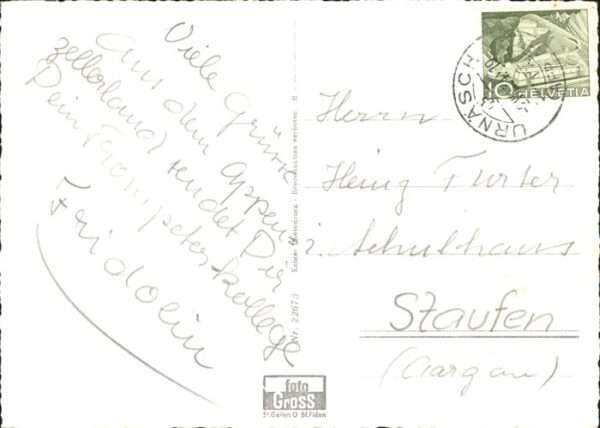 Viele Grüsse
aus dem Appen-
zellerland sendet Dir
Dein Trompeterkollege
Fridolin
Nr. 22673
foto
Gross
St.Gallen O St.Fiden
10 HELVETIA
URNÄSCH
Herrn
Heinz Furter
z. Schulhaus
Staufen
(Aargau)